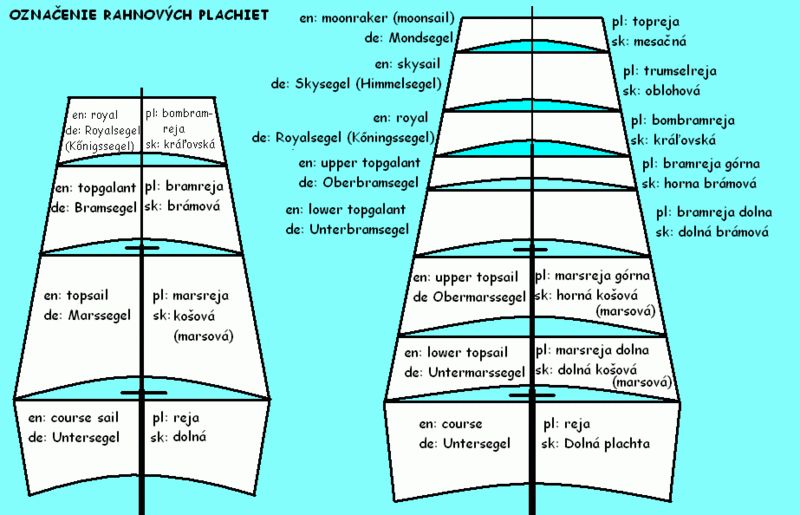 OZNAČENIE RAHNOVÝCH PLACHIET
en: royal
de: Royalsegel
(Kőnigssegel)
pl: bombram-
reja
sk: kráľovská
en: topgalant
de: Bramsegel
pl: bramreja
sk: brámová
en: topsail
de: Marssegel
pl: marsreja
sk: košová
(marsová)
en: course sail
de: Untersegel
pl: reja
sk: dolná
en: moonraker (moonsail)
de: Mondsegel
pl: topreja
sk: mesačná
en: skysail
de: Skysegel (Himmelsegel)
pl: trumselreja
sk: oblohová
en: royal
de: Royalsegel (Kőningssegel)
pl: bombramreja
sk: kráľovská
en: upper topgalant
de: Oberbramsegel
pl: bramreja górna
sk: horna brámová
en: lower topgalant
de: Unterbramsegel
pl: bramreja dolna
sk: dolná brámová
en: upper topsail
de Obermarssegel
pl: marsreja górna
sk: horná košová
(marsová)
en: lower topsail
de: Untermarssegel
pl: marsreja dolna
sk: dolná košová
(marsová)
en: course
de: Untersegel
pl: reja
sk: Dolná plachta